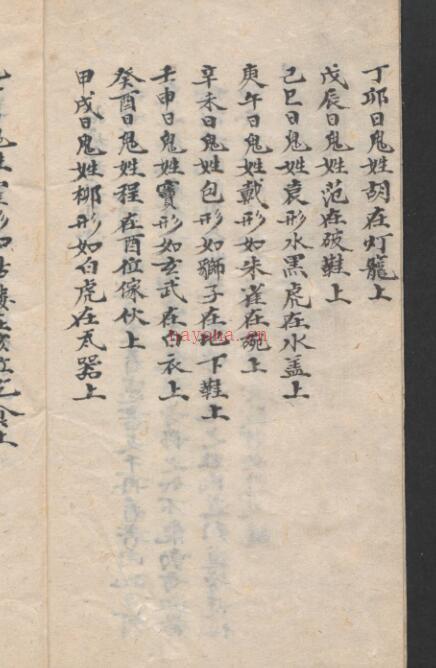 丁卯日鬼姓胡在灯籠上
戊辰日鬼姓范在破鞋上
己巳日鬼姓袁形水黑虎在水盖上
庚午日鬼姓戴形如朱雀在碗上
辛未日鬼姓包形如獅子在地下鞋上
壬申日鬼姓竇形如玄武在白衣上
癸酉日鬼姓程在酉位傢伙上
甲戌日鬼姓柳形如白虎在瓦器上
nayona.cn